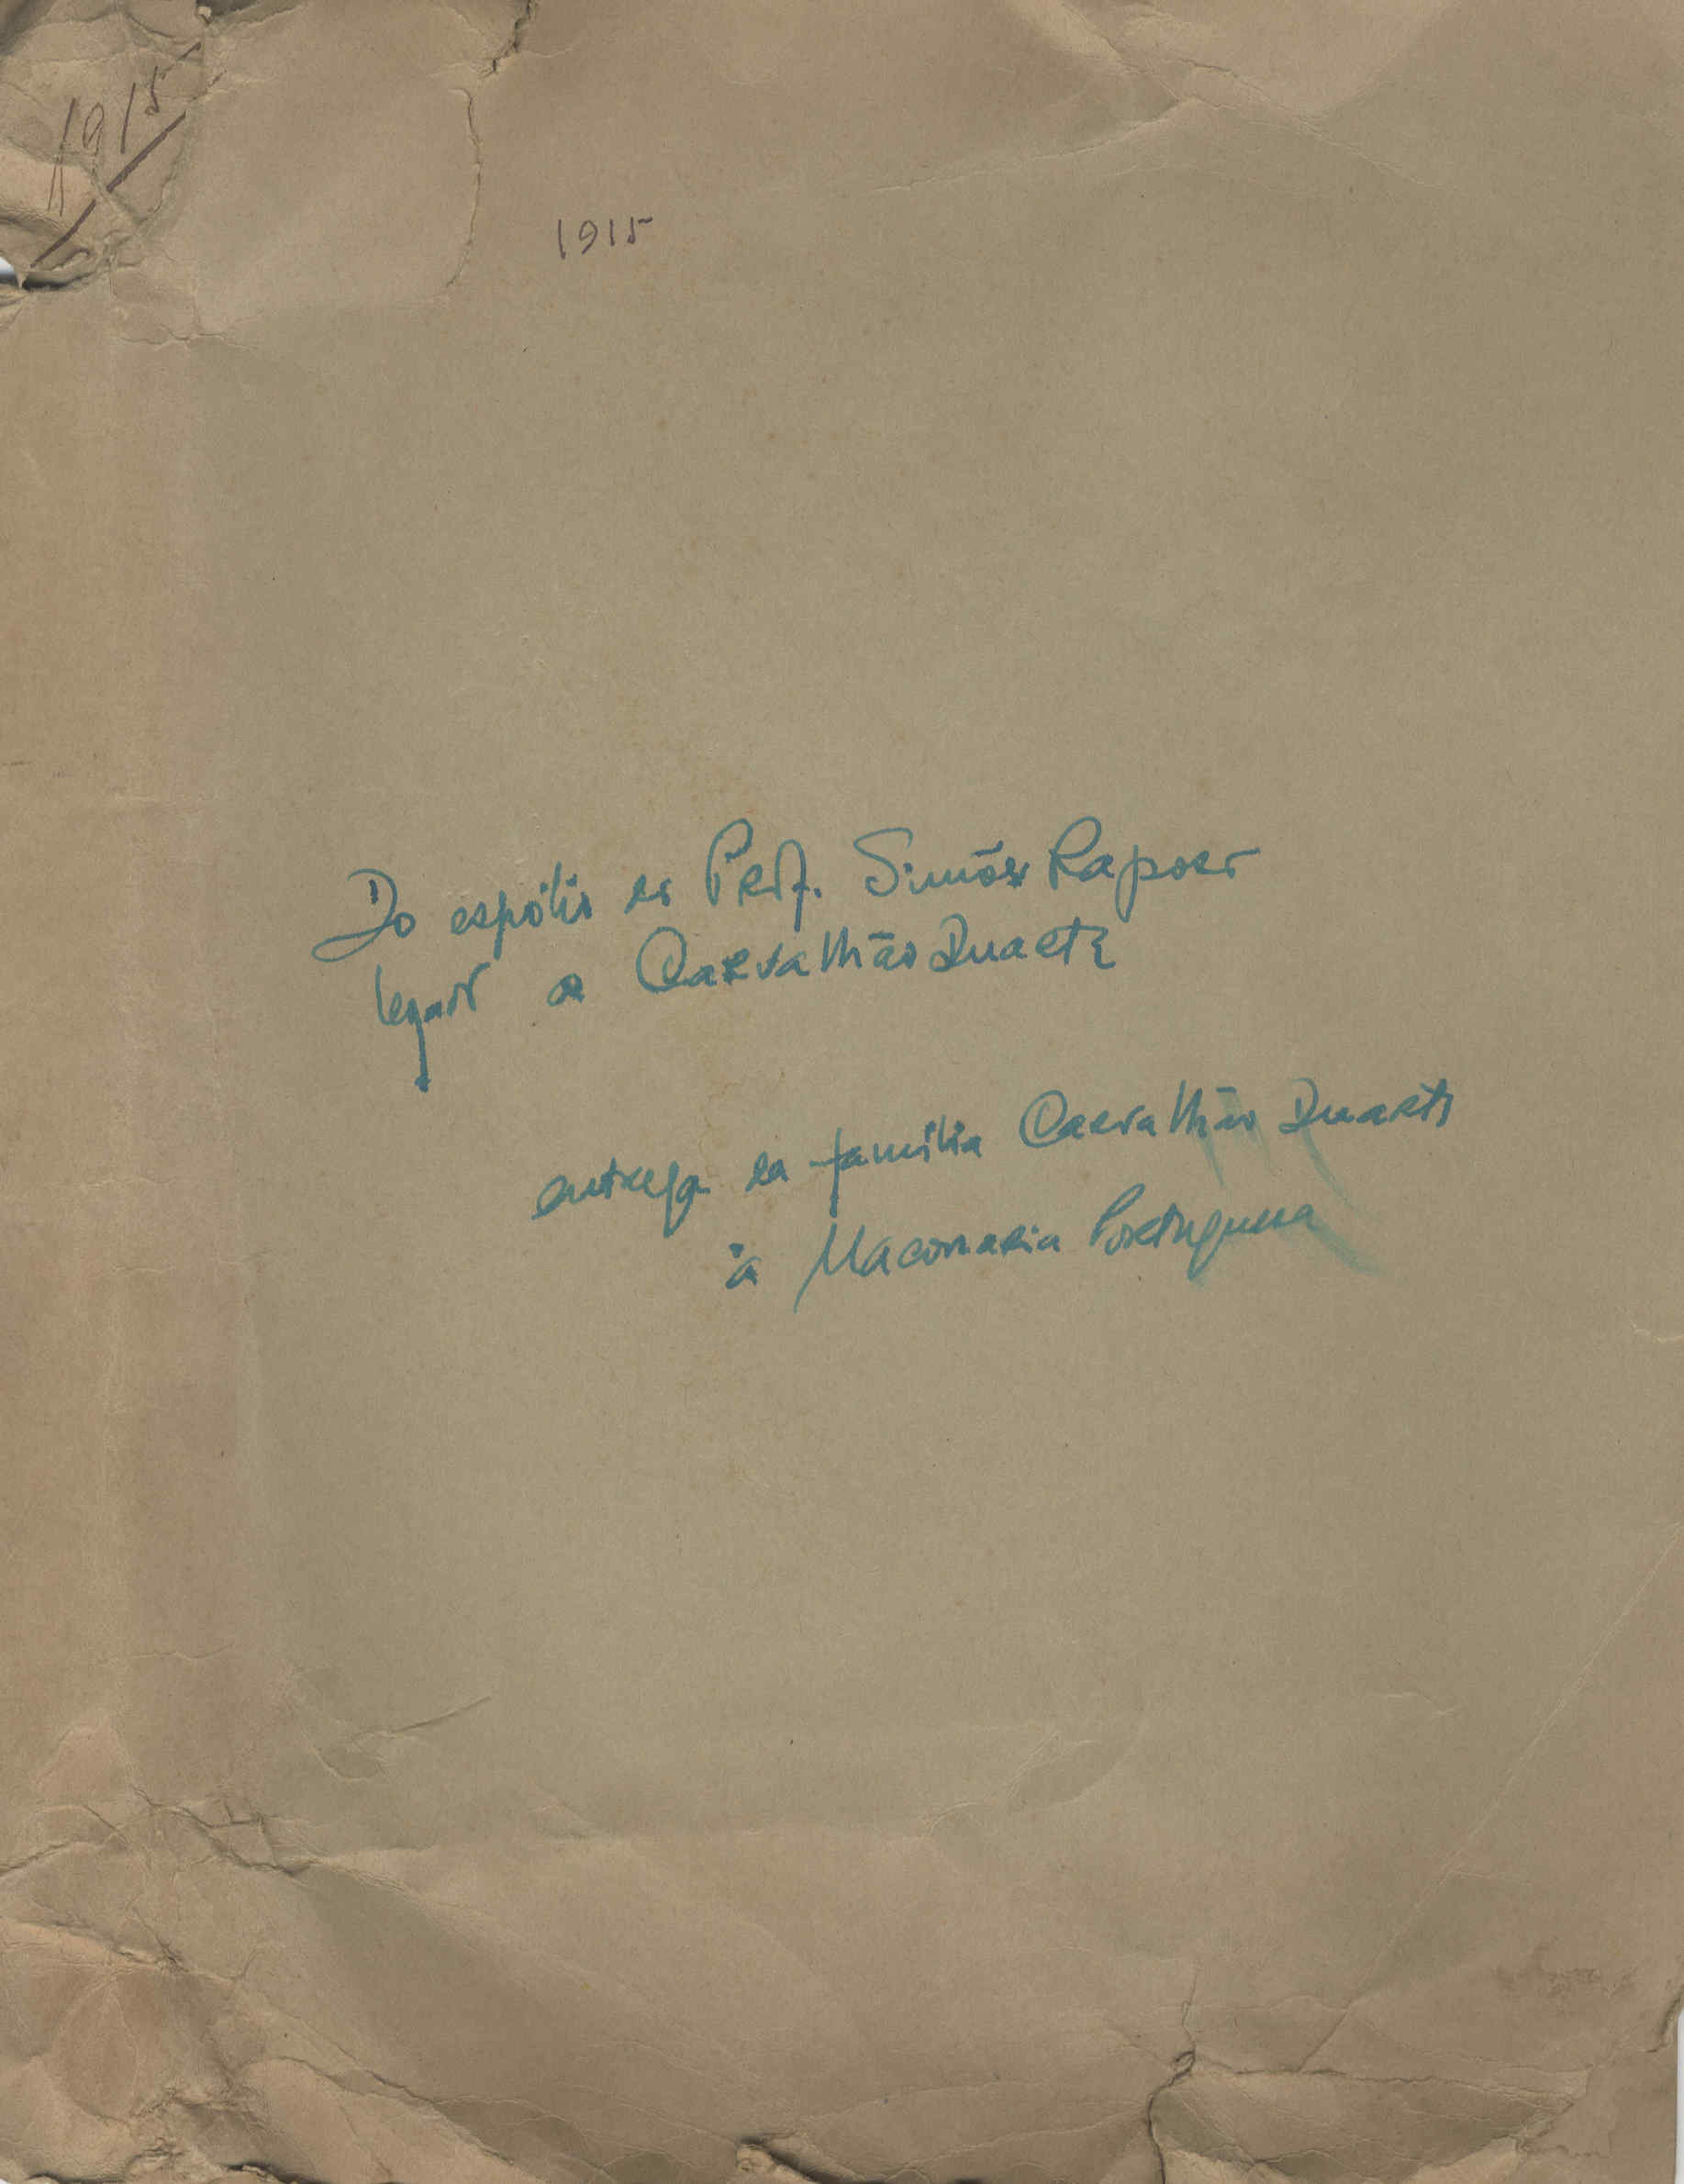 1915
1915
Do espólio do Prof. Simões Raposo
legado a Carvalhão Duarte
entrega da família Carvalhão Duarte
à Maçonaria Portuguesa